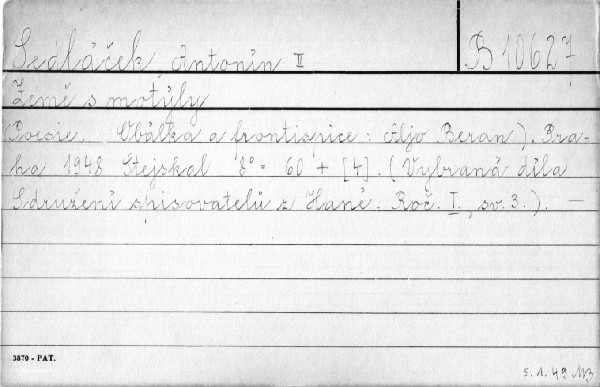 Sedláček Antonín II
B 10627
Země s motýly
(Poesie. Obálka a frontispice: Aljo Beran). Pra-
ha 1948 Stejskal 8° = 60 + [4]. (Vybraná díla
Sdružení spisovatelů z Hané. Roč. I., sv. 3.). —
3870 - PAT.
5.1.49